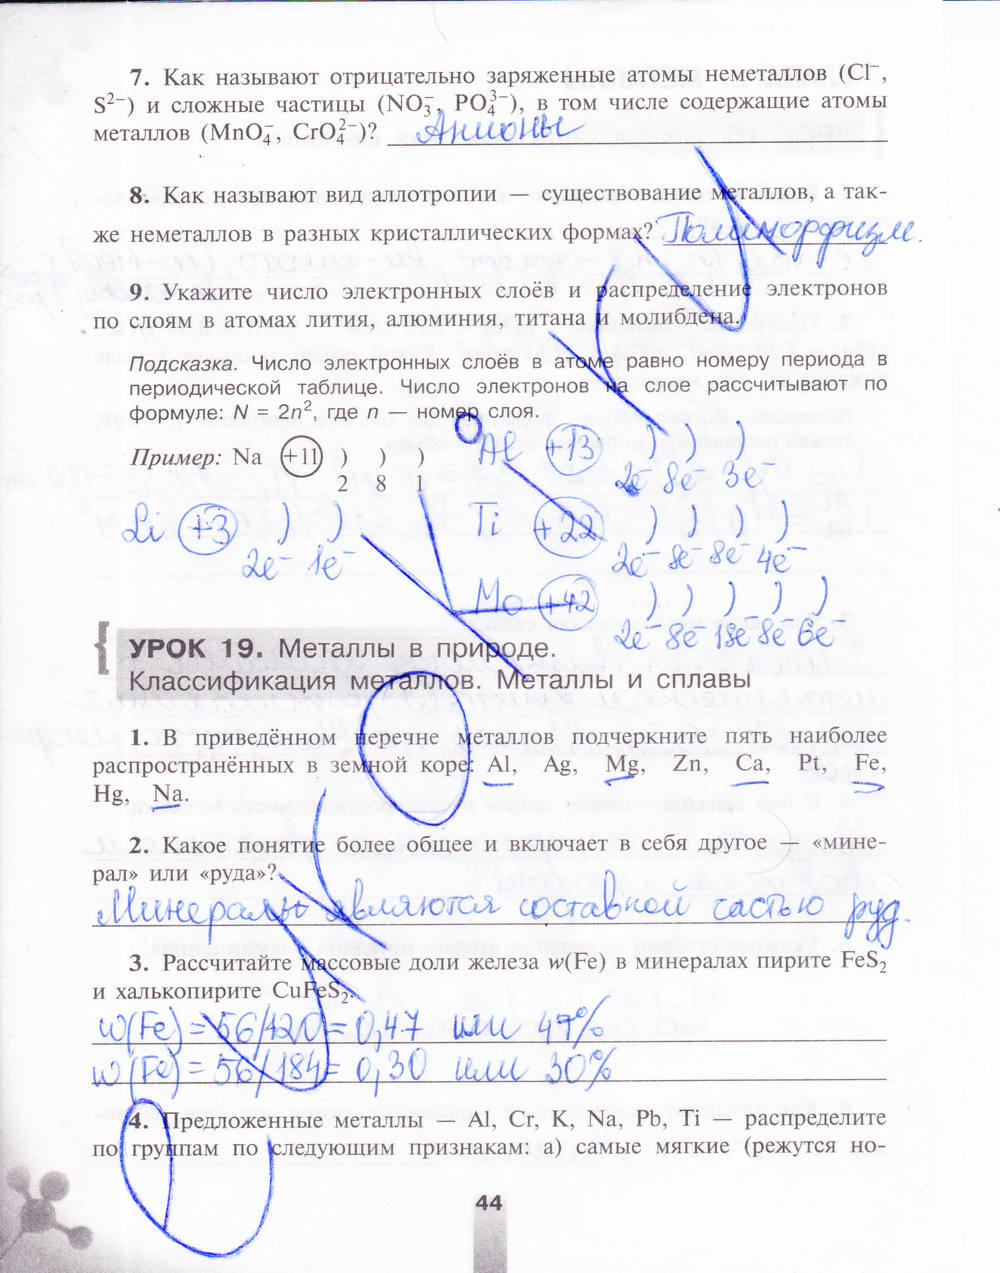 7. Как называют отрицательно заряженные атомы неметаллов (Cl⁻,
S²⁻) и сложные частицы (NO₃⁻, PO₄³⁻), в том числе содержащие атомы
металлов (MnO₄⁻, CrO₄²⁻)? Анионы
8. Как называют вид аллотропии — существование металлов, а так-
же неметаллов в разных кристаллических формах? Полиморфизм.
9. Укажите число электронных слоёв и распределение электронов
по слоям в атомах лития, алюминия, титана и молибдена.
Подсказка. Число электронных слоёв в атоме равно номеру периода в
периодической таблице. Число электронов на слое рассчитывают по
формуле: N = 2n², где n — номер слоя.
Пример: Na +11 ) ) )
2 8 1
Al +13 ) ) )
2e⁻ 8e⁻ 3e⁻
Li +3 ) )
2e⁻ 1e⁻
Ti +22 ) ) ) )
2e⁻ 8e⁻ 8e⁻ 4e⁻
Mo +42 ) ) ) ) )
2e⁻ 8e⁻ 18e⁻ 8e⁻ 6e⁻
УРОК 19. Металлы в природе.
Классификация металлов. Металлы и сплавы
1. В приведённом перечне металлов подчеркните пять наиболее
распространённых в земной коре: Al, Ag, Mg, Zn, Ca, Pt, Fe,
Hg, Na.
2. Какое понятие более общее и включает в себя другое — «мине-
рал» или «руда»?
Минералы являются составной частью руд.
3. Рассчитайте массовые доли железа w(Fe) в минералах пирите FeS₂
и халькопирите CuFeS₂.
w(Fe) = 56/120 = 0,47 или 47%
w(Fe) = 56/184 = 0,30 или 30%
4. Предложенные металлы — Al, Cr, K, Na, Pb, Ti — распределите
по группам по следующим признакам: а) самые мягкие (режутся но-
44